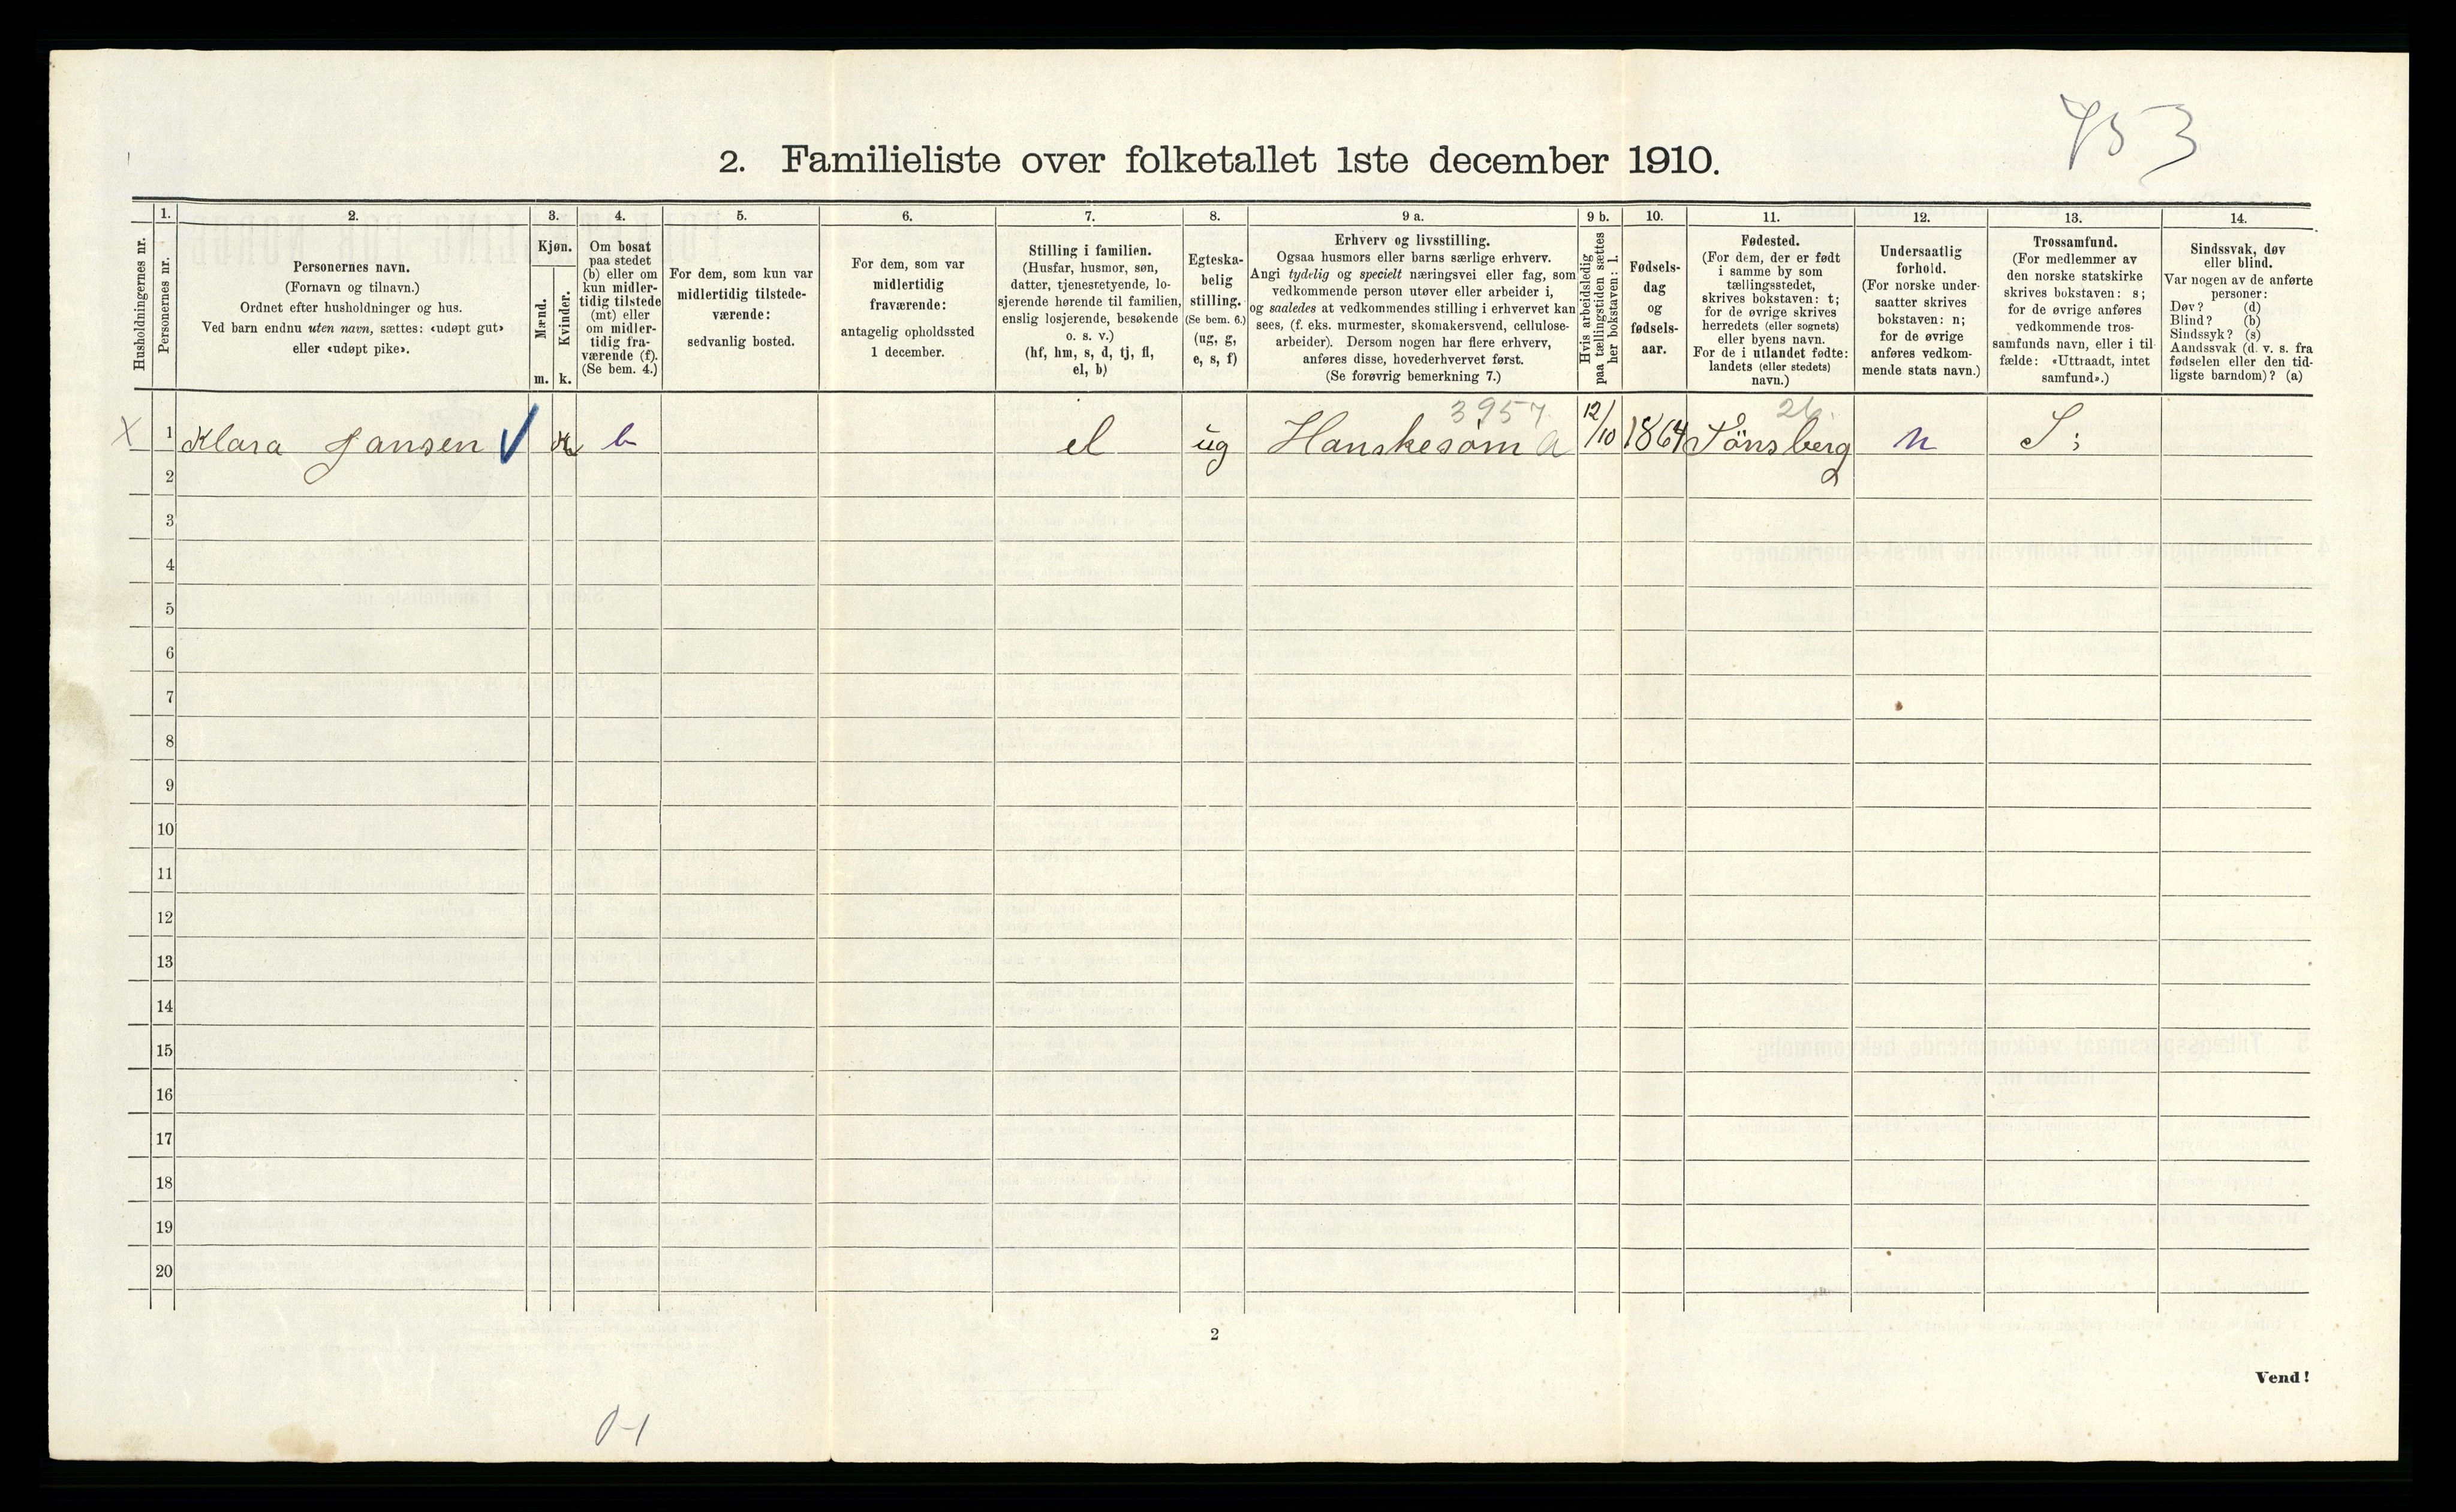 753
2. Familieliste over folketallet 1ste december 1910.
1. 2. 3. 4. 5. 6. 7. 8. 9 a. 9 b. 10. 11. 12. 13. 14.
Husholdningernes nr.
Personernes nr.
Personernes navn.
(Fornavn og tilnavn.)
Ordnet efter husholdninger og hus.
Ved barn endnu uten navn, sættes: «udøpt gut»
eller «udøpt pike».
Kjøn.
Mænd.
Kvinder.
m. k.
Om bosat
paa stedet
(b) eller om
kun midler-
tidig tilstede
(mt) eller
om midler-
tidig fra-
værende (f).
(Se bem. 4.)
For dem, som kun var
midlertidig tilstede-
værende:
sedvanlig bosted.
For dem, som var
midlertidig
fraværende:
antagelig opholdssted
1 december.
Stilling i familien.
(Husfar, husmor, søn,
datter, tjenestetyende, lo-
sjerende hørende til familien,
enslig losjerende, besøkende
o. s. v.)
(hf, hm, s, d, tj, fl,
el, b)
Egteska-
belig
stilling.
(Se bem. 6.)
(ug, g,
e, s, f)
Erhverv og livsstilling.
Ogsaa husmors eller barns særlige erhverv.
Angi tydelig og specielt næringsvei eller fag, som
vedkommende person utøver eller arbeider i,
og saaledes at vedkommendes stilling i erhvervet kan
sees, (f. eks. murmester, skomakersvend, cellulose-
arbeider). Dersom nogen har flere erhverv,
anføres disse, hovederhvervet først.
(Se forøvrig bemerkning 7.)
Hvis arbeidsledig
paa tællingstiden sættes
her bokstaven: l.
Fødsels-
dag
og
fødsels-
aar.
Fødested.
(For dem, der er født
i samme by som
tællingsstedet,
skrives bokstaven: t;
for de øvrige skrives
herredets (eller sognets)
eller byens navn.
For de i utlandet fødte:
landets (eller stedets)
navn.)
Undersaatlig
forhold.
(For norske under-
saatter skrives
bokstaven: n;
for de øvrige
anføres vedkom-
mende stats navn.)
Trossamfund.
(For medlemmer av
den norske statskirke
skrives bokstaven: s;
for de øvrige anføres
vedkommende tros-
samfunds navn, eller i til-
fælde: «Uttraadt, intet
samfund».)
Sindssvak, døv
eller blind.
Var nogen av de anførte
personer:
Døv? (d)
Blind? (b)
Sindssyk? (s)
Aandssvak (d. v. s. fra
fødselen eller den tid-
ligste barndom)? (a)
3957 26.
X 1 Klara Jansen k b el ug Hanskesøm a 12/10 1864 Tönsberg n S;
2
3
4
5
6
7
8
9
10
11
12
13
14
15
16
17
18
19
20
2
Vend!
0-1